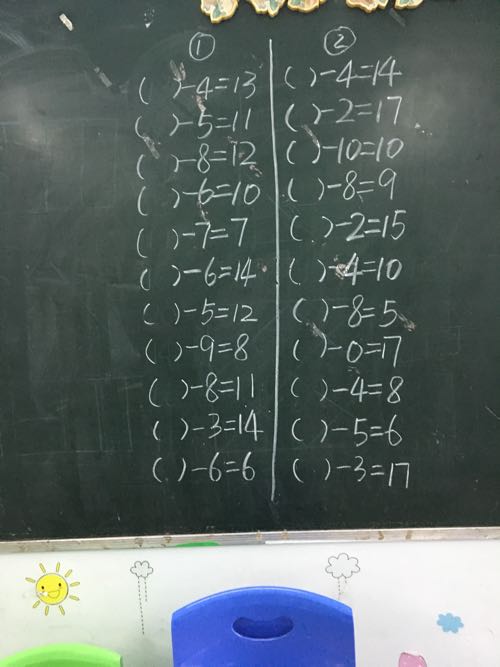 ①
( )-4=13
( )-5=11
( )-8=12
( )-6=10
( )-7=7
( )-6=14
( )-5=12
( )-9=8
( )-8=11
( )-3=14
( )-6=6
②
( )-4=14
( )-2=17
( )-10=10
( )-8=9
( )-2=15
( )-4=10
( )-8=5
( )-0=17
( )-4=8
( )-5=6
( )-3=17